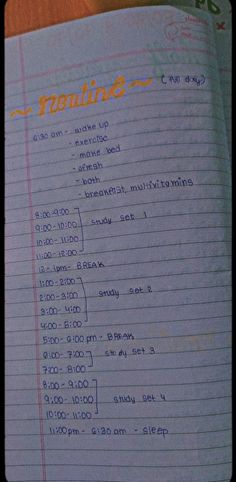 ~ routine ~ (full day)
6:30 am - wake up
- exercise
- make bed
- afresh
- bath
- breakfast, multivitamins
8:00-9:00
9:00-10:00
study set 1
10:00 - 11:00
11:00 - 12:00
12 - 1pm - BREAK
1:00-2:00
2:00-3:00
study set 2
3:00-4:00
4:00-5:00
5:00 - 6:00 pm - BREAK
6:00- 7:00
study set 3
7:00 - 8:00
8:00 - 9:00
9:00 - 10:00
study set 4
10:00- 11:00
11:00pm - 6:30 am - sleep